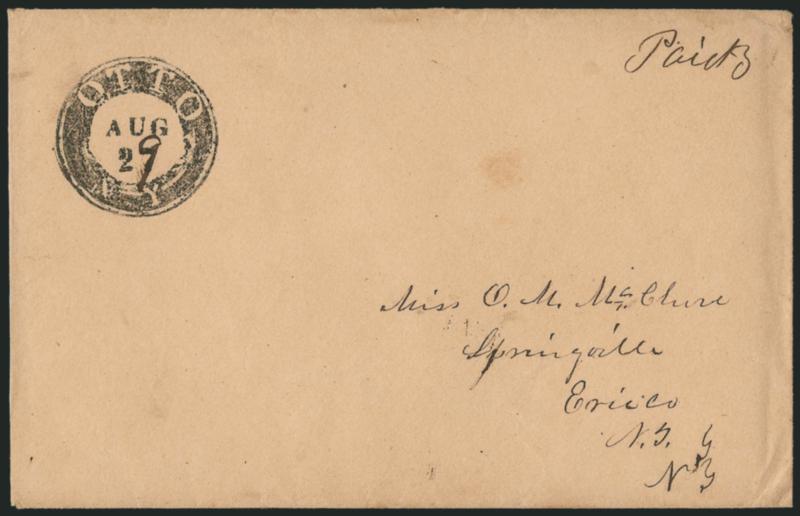 Paid 3
OTTO
AUG
29
N Y
Miss O. M. McClure
Springville
Erie co
N. Y. Y
N Y